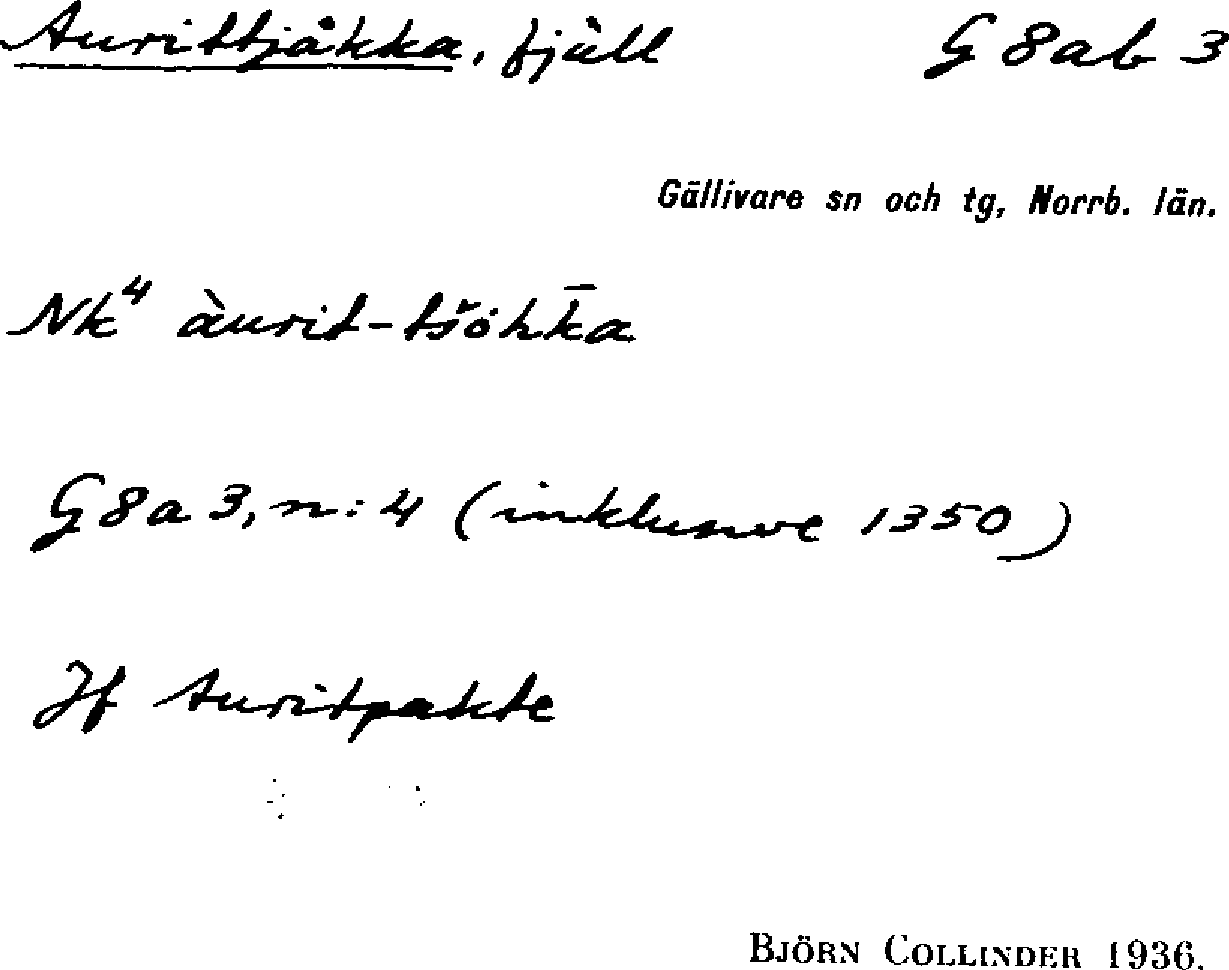 Aurittjåkka, fjäll G 8ab 3
Gällivare sn och tg, Norrb. län.
Nk⁴ àurit-tšòhk̄a
G 8 a 3, n:4 (inklusive 1350)
Jf Auritpakte
BJÖRN COLLINDER 1936.